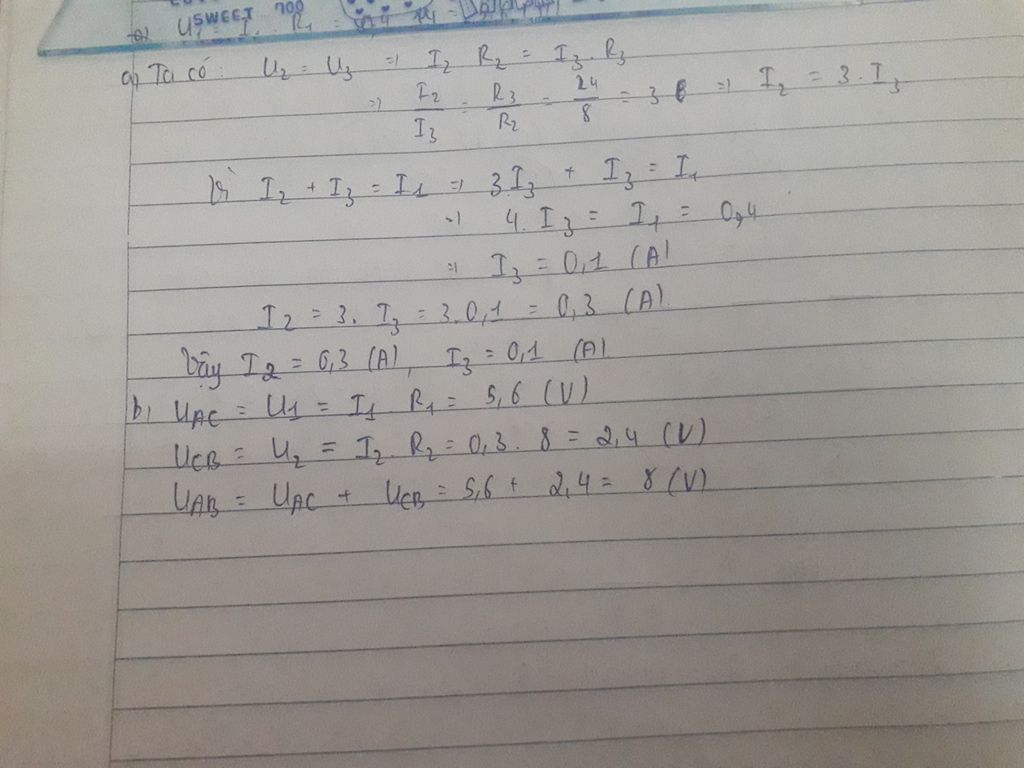 SWEET 700
U₁ = I₁. R₁ =
a, Ta có: U₂ = U₃ => I₂ R₂ = I₃. R₃
=> I₂/I₃ = R₃/R₂ = 24/8 = 3 => I₂ = 3. I₃
Vì I₂ + I₃ = I₁ => 3I₃ + I₃ = I₁
=> 4. I₃ = I₁ = 0,4
=> I₃ = 0,1 (A)
I₂ = 3. I₃ = 3.0,1 = 0,3 (A)
Vậy I₂ = 0,3 (A), I₃ = 0,1 (A)
b, UAC = U1 = I1. R1 = 5,6 (V)
UCB = U₂ = I₂. R₂ = 0,3. 8 = 2,4 (V)
UAB = UAC + UCB = 5,6 + 2,4 = 8 (V)